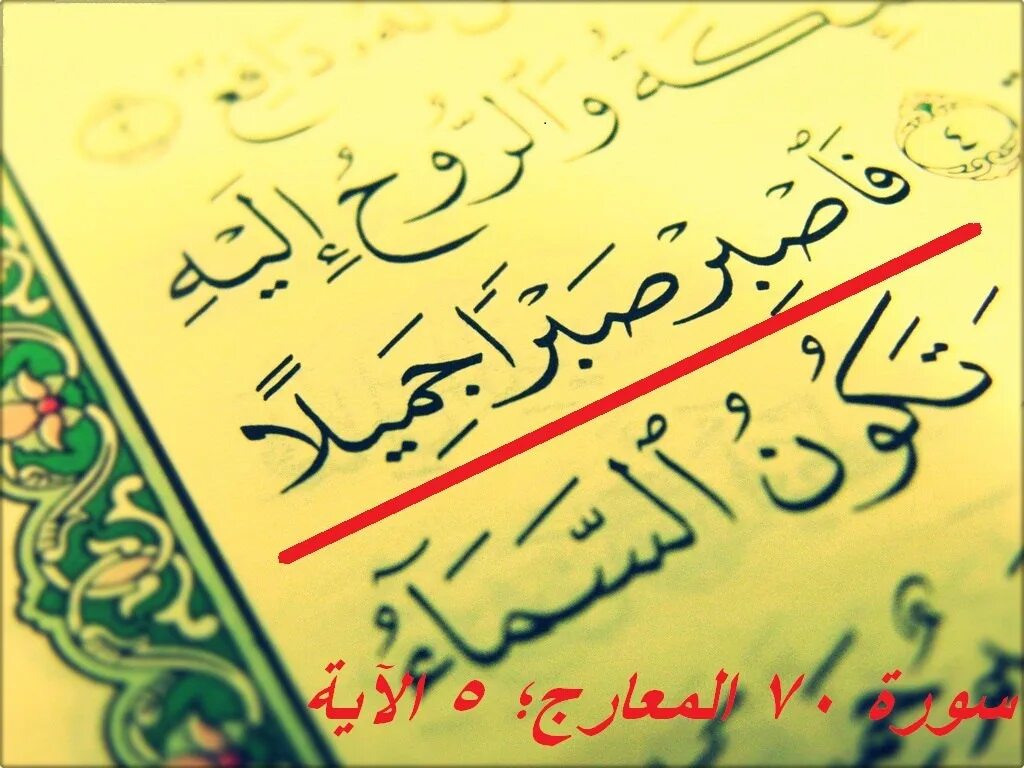 دَافِعٌ ٢
وَٱلرُّوحُ إِلَيْهِ
٤ فَٱصْبِرْ صَبْرًا جَمِيلًا
تَكُونُ ٱلسَّمَآءُ
سورة ٧٠ المعارج؛ ٥ الآية